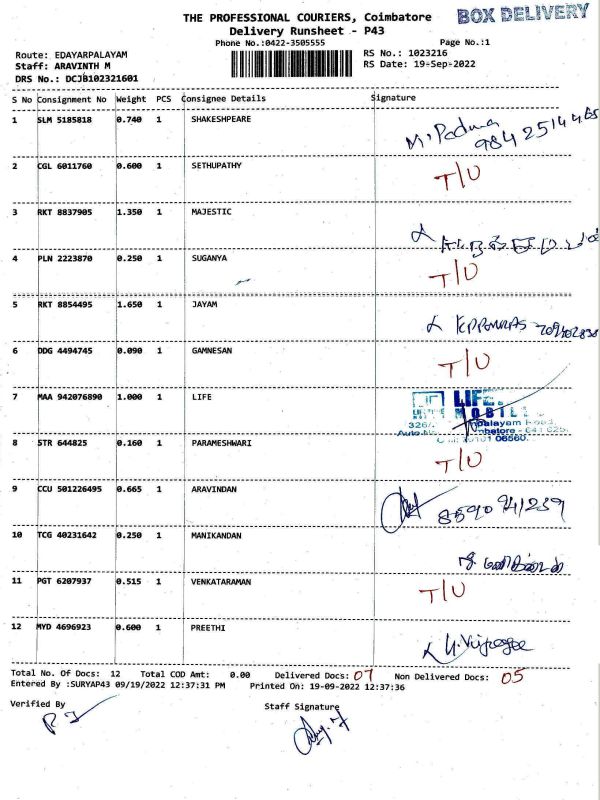 THE PROFESSIONAL COURIERS, Coimbatore
BOX DELIVERY
Delivery Runsheet - P43
Phone No.:0422-3505555 Page No.:1
Route: EDAYARPALAYAM RS No.: 1023216
Staff: ARAVINTH M RS Date: 19-Sep-2022
DRS No.: DCJB102321601
S No Consignment No Weight PCS Consignee Details Signature
1 SLM 5185818 0.740 1 SHAKESHPEARE
M. Padma
2 CGL 6011760 0.600 1 SETHUPATHY T/U
3 RKT 8837905 1.350 1 MAJESTIC
4 PLN 2223870 0.250 1 SUGANYA T/U
5 RKT 8854495 1.650 1 JAYAM
6 DDG 4494745 0.090 1 GAMNESAN T/U
7 MAA 942076890 1.000 1 LIFE
LIFE
MOBILE
8 STR 644825 0.160 1 PARAMESHWARI T/U
9 CCU 501226495 0.665 1 ARAVINDAN
8590941239
10 TCG 40231642 0.250 1 MANIKANDAN
11 PGT 6207937 0.515 1 VENKATARAMAN T/U
12 MYD 4696923 0.600 1 PREETHI
Total No. Of Docs: 12 Total COD Amt: 0.00 Delivered Docs: 07 Non Delivered Docs: 05
Entered By :SURYAP43 09/19/2022 12:37:31 PM Printed On: 19-09-2022 12:37:36
Verified By Staff Signature